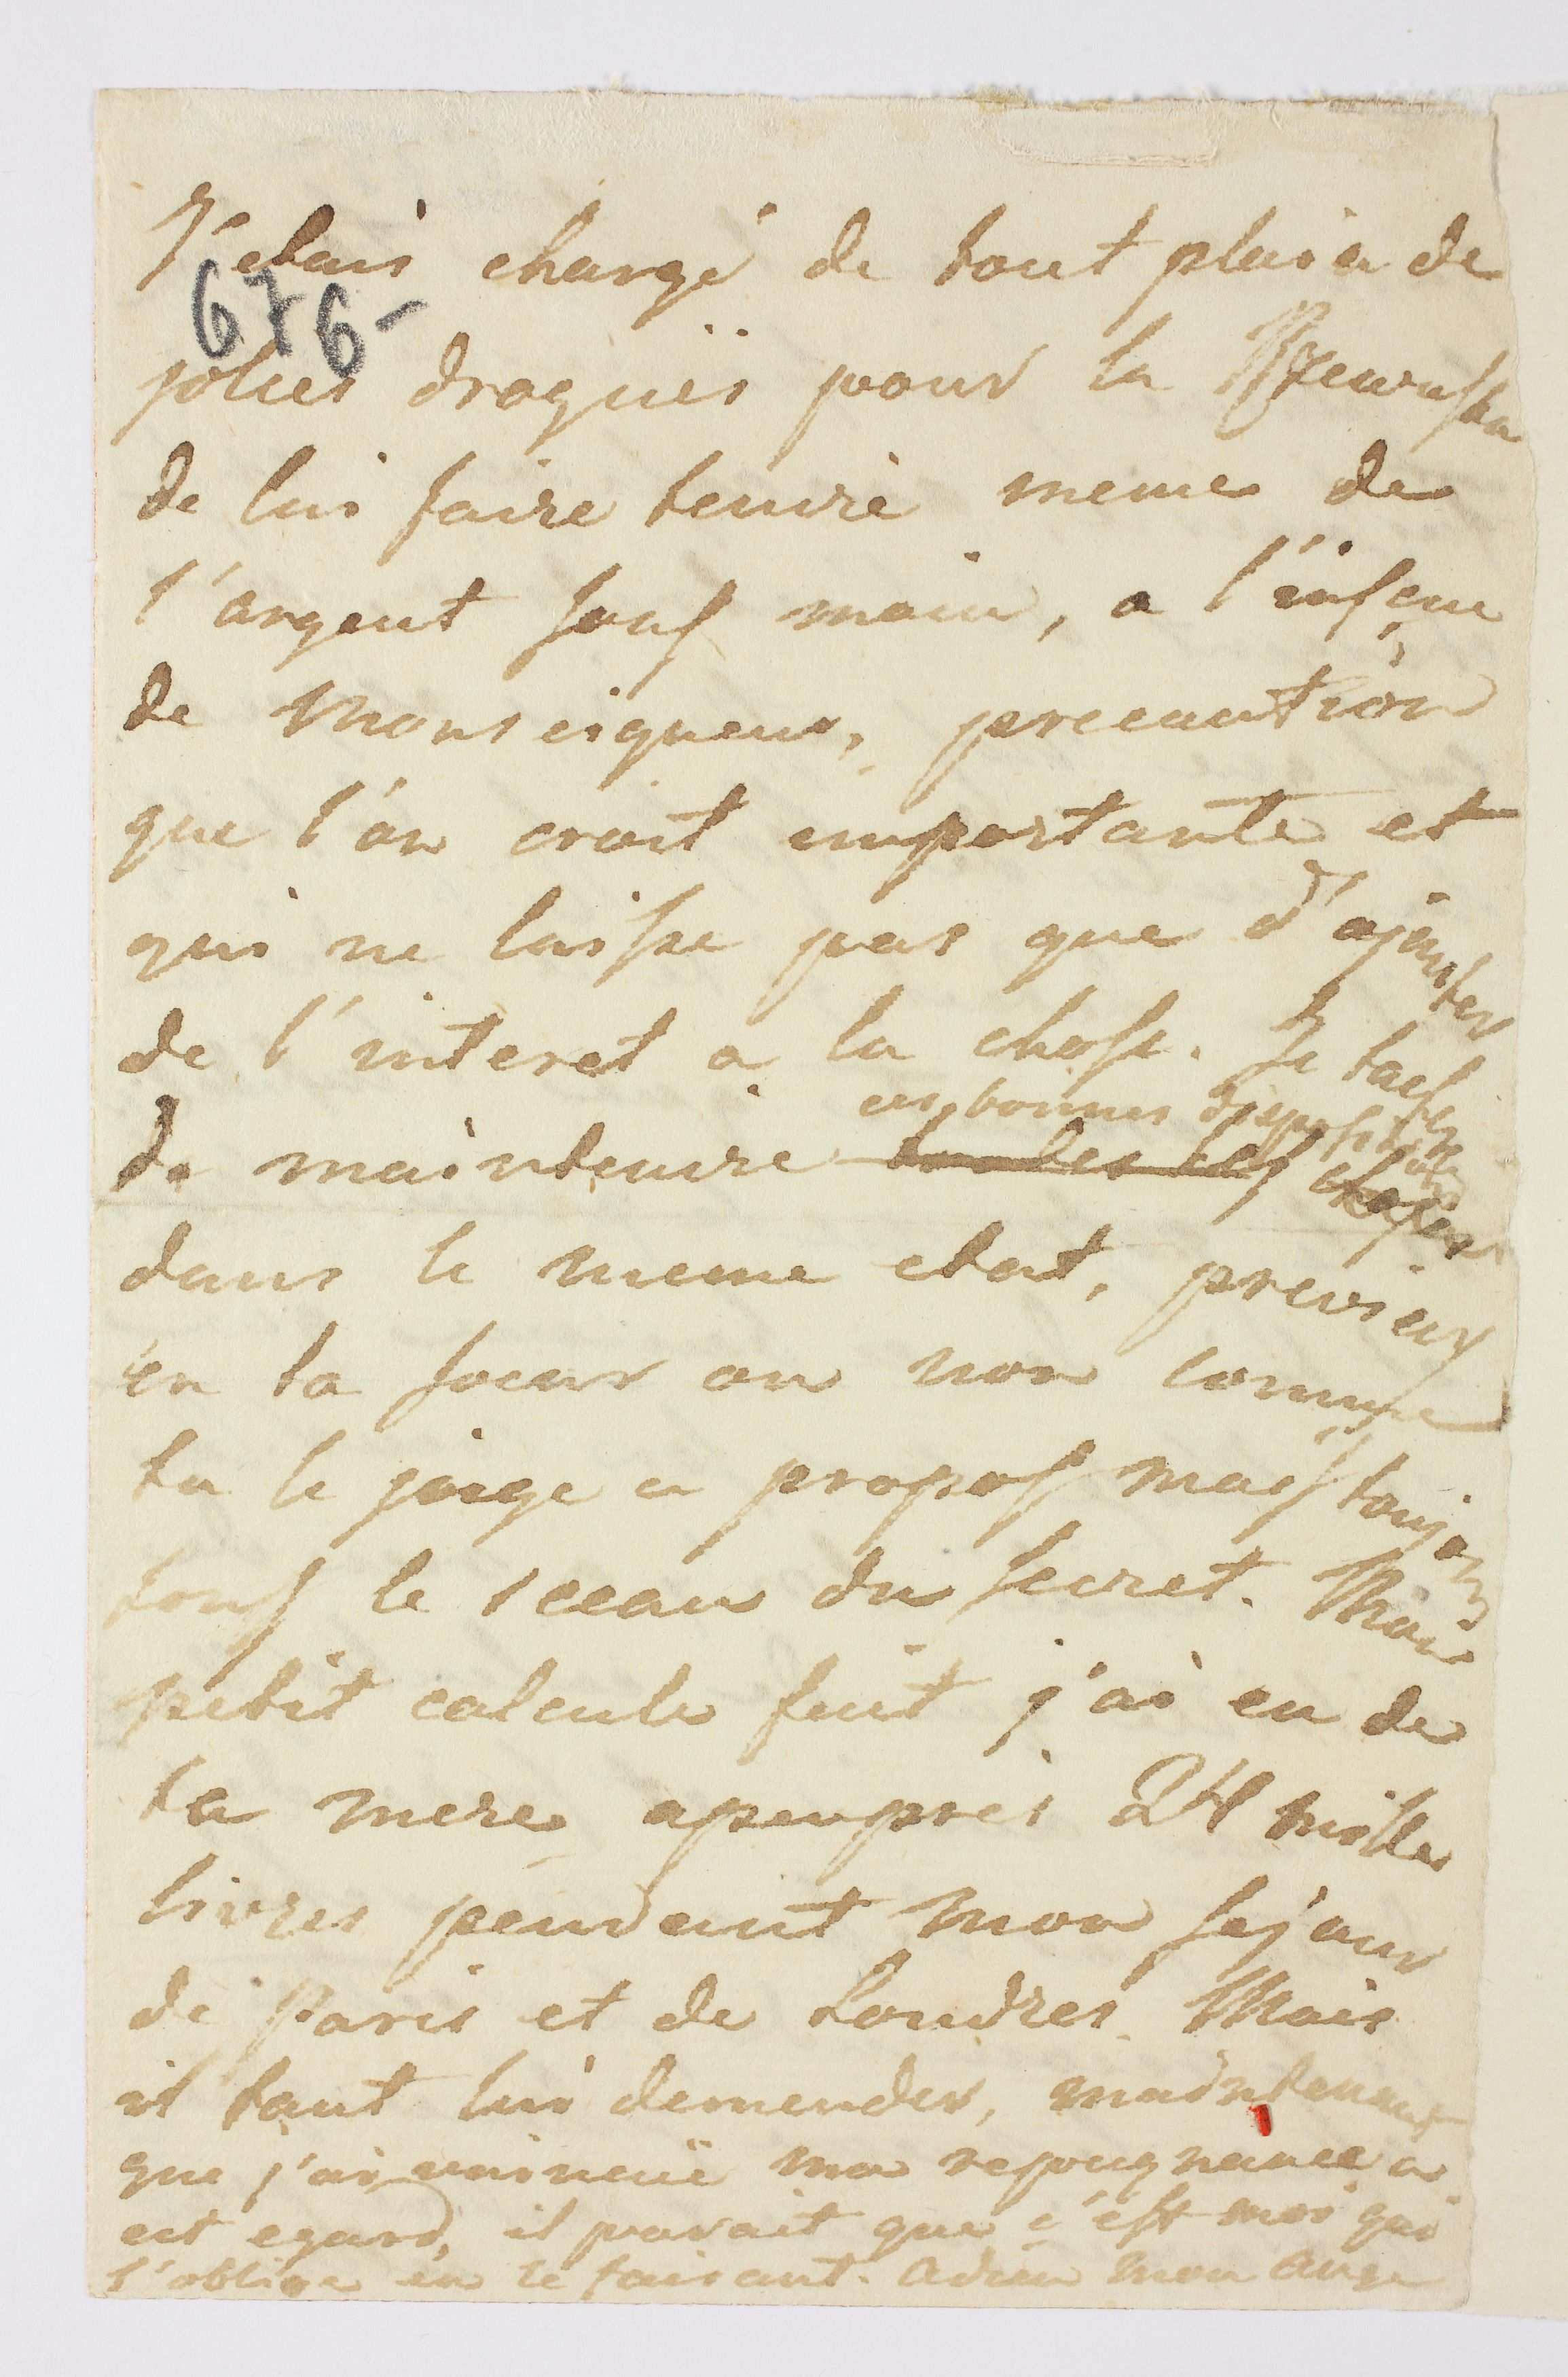 J'etais chargé de tout plain de
676-
jolies droguës pour la
de lui faire tenire meme de
l'argent sous main, a l'insçu
de Monseigneur, precaution
que l'on croit importante et
qui ne laisse pas que d'ajouter
de l'interet a la chose. Je tache
ces bonnes dispositions
de maintenire toutes ces choses
dans le meme etat, previens
en ta soeur ou non comme
tu le juge a propos mais toujours
sous le sceau du secret. Mon
petit calcule fait j'ai eu de
ta mere apeuprés 24 mille
livres pendant mon sejour
de Paris et de Londres. Mais
il faut lui demender, maintenant
que j'ai vaincuë ma repougnance a
cet egard, il parait que c'est moi qui
l'oblige en le faisant. Adieu mon ange